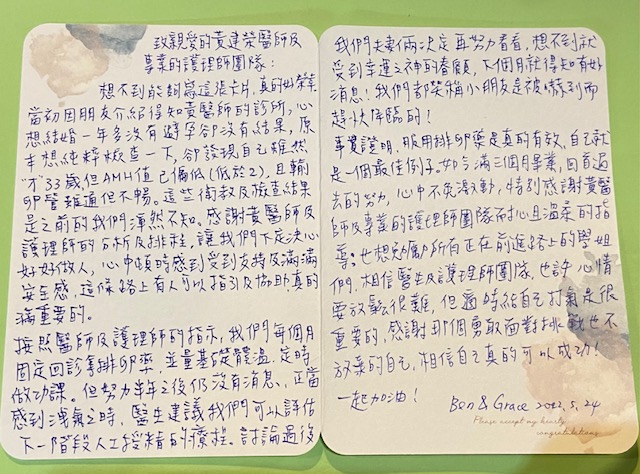 致親愛的黃建榮醫師及
專業的護理師團隊：
想不到能夠寫這張卡片，真的好榮幸
當初因朋友介紹得知黃醫師的診所，心
想結婚一年多沒有避孕卻沒有結果，原
本想純粹檢查一下，卻發現自己雖然
"才"33歲但AMH值已偏低(低於2)，且輸
卵管雖通但不暢。這些衛教及檢查結果
是之前的我們渾然不知。感謝黃醫師及
護理師的分析及排程，讓我們下定決心
好好做人，心中頓時感到受到支持及滿滿
安全感，這條路上有人可以指引及協助真的
滿重要的。
按照醫師及護理師的指示，我們每個月
固定回診拿排卵藥，並量基礎體溫、定時
做功課。但努力半年之後仍沒有消息，正當
感到洩氣之時，醫生建議我們可以評估
下一階段人工授精的療程。討論過後
我們夫妻倆決定再努力看看，想不到就
受到幸運之神的眷顧，下個月就得知有好
消息！我們都笑稱小朋友是被嚇到而
趕快降臨的！
事實證明，服用排卵藥是真的有效，自己就
是一個最佳例子。如今滿三個月畢業，回首過
去的努力，心中不免激動，特別感謝黃醫
師及專業的護理師團隊耐心且溫柔的指
導；也想勉勵所有正在前進路上的學姐
們，相信醫生及護理師團隊，也許心情
要放鬆很難，但適時給自己打氣是很
重要的，感謝那個勇敢面對挑戰也不
放棄的自己，相信自己真的可以成功！
一起加油！
Ben & Grace 2022.5.24
Please accept my hearty
congratulations